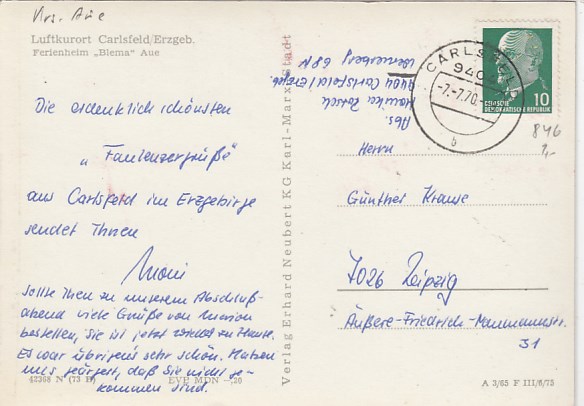 Krs. Aue
Luftkurort Carlsfeld/Erzgeb.
Ferienheim „Blema“ Aue
Die ordentlich schönsten
„Faulenzergrüße“
aus Carlsfeld im Erzgebirge
sendet Ihnen
Moni
Sollte Ihen zu unserem Abschluß-
abend viele Grüße von Marion
bestellen, Sie ist jetzt zu Hause.
Es war übrigens sehr schön. Haben
uns geärgert, daß Sie nicht ge-
kommen sind.
42368 N (73 B) EVP MDN -,20
Verlag Erhard Neubert KG Karl-Marx-Stadt
Abs.
9404 Carlsfeld/Erzgeb.
CARLSFELD
940
-7.-7.70
b
10
DEUTSCHE
DEMOKRATISCHE REPUBLIK
846
2,-
Herrn
Günther Krause
7026 Leipzig
Äußere-Friedrich-Naumannstr.
31
A 3/65 F III/6/73